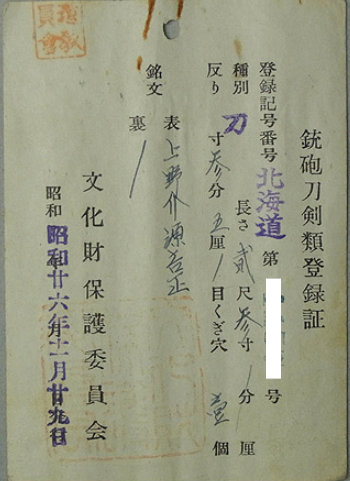 銃砲刀剣類登録証
登録記号番号 北海道 第 号
種別 刀 長さ 貳尺参寸/分 厘
反り 寸参分五厘/目くぎ穴 壹個
銘文 表 上野介源吉正
裏 /
文化財保護委員会
昭和 昭和廿六年十一月廿九日